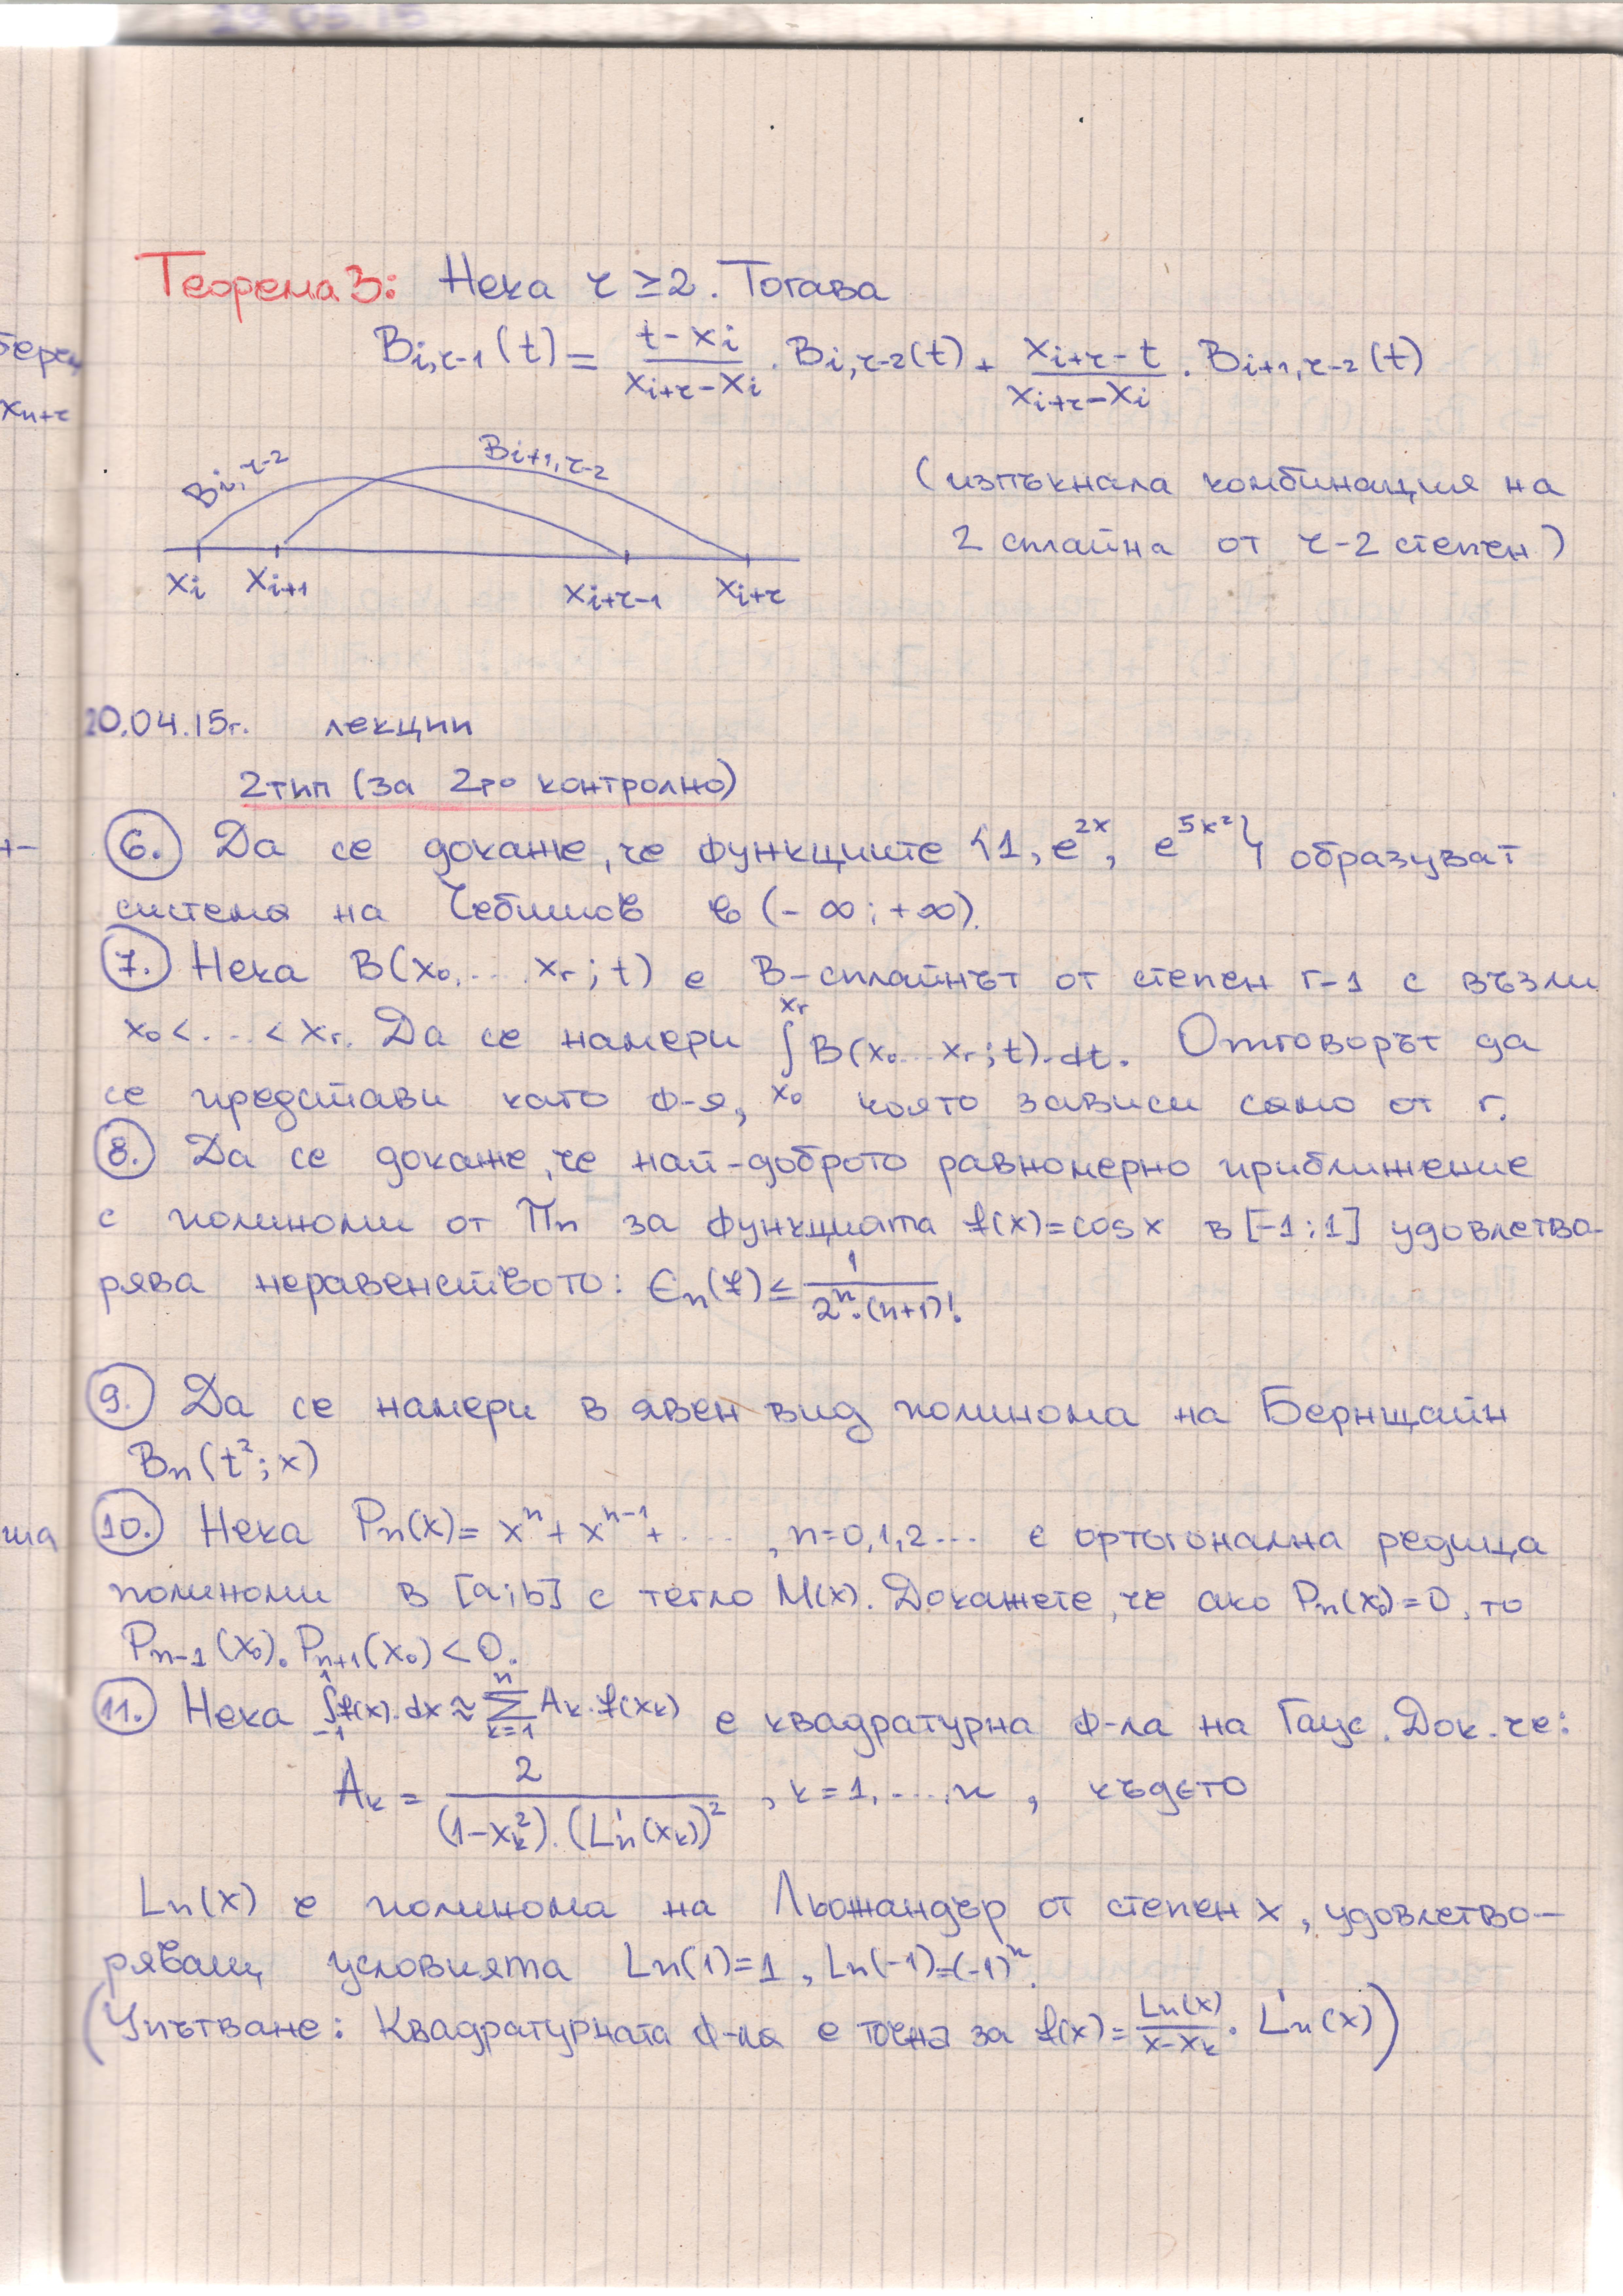 29.03.15
Теорема 3: Нека r ≥ 2. Тогава
B_{i,r-1}(t) = \frac{t - x_i}{x_{i+r} - x_i} . B_{i,r-2}(t) + \frac{x_{i+r} - t}{x_{i+r} - x_i} . B_{i+1,r-2}(t)
x_{n+r}
B_{i,r-2} B_{i+1,r-2}
(изпъкнала комбинация на
2 сплайна от r-2 степен)
x_i x_{i+1} x_{i+r-1} x_{i+r}
20.04.15г. лекции
2 тип (за 2ро контролно)
6. Да се докаже, че функциите {1, e^{2x}, e^{5x^2}} образуват
система на Чебишов в (-∞; +∞).
7. Нека B(x_0,... x_r; t) е B-сплайнът от степен r-1 с възли
x_0 < ... < x_r. Да се намери ∫_{x_0}^{x_r} B(x_0... x_r; t).dt. Отговорът да
се представи като ф-я, която зависи само от r.
8. Да се докаже, че най-доброто равномерно приближение
с полиноми от π_n за функцията f(x) = cos x в [-1;1] удовлетво-
рява неравенството: E_n(f) ≤ \frac{1}{2^n.(n+1)!}
9. Да се намери в явен вид полинома на Бернщайн
B_n(t^2; x)
10. Нека P_n(x) = x^n + x^{n-1} + ..., n=0,1,2... е ортогонална редица
полиноми в [a;b] с тегло M(x). Докажете, че ако P_n(x_0)=0, то
P_{n-1}(x_0).P_{n+1}(x_0) < 0.
11. Нека ∫_{-1}^{1} f(x).dx ≈ \sum_{k=1}^{n} A_k.f(x_k) е квадратурна ф-ла на Гаус. Док. че:
A_k = \frac{2}{(1-x_k^2).(L_n'(x_k))^2}, k=1,...,n, където
L_n(x) е полинома на Льожандър от степен x, удовлетво-
ряващ условията L_n(1)=1, L_n(-1)=(-1)^n.
(Упътване: Квадратурната ф-ла е точна за f(x) = \frac{L_n(x)}{x-x_k}. L_n'(x))